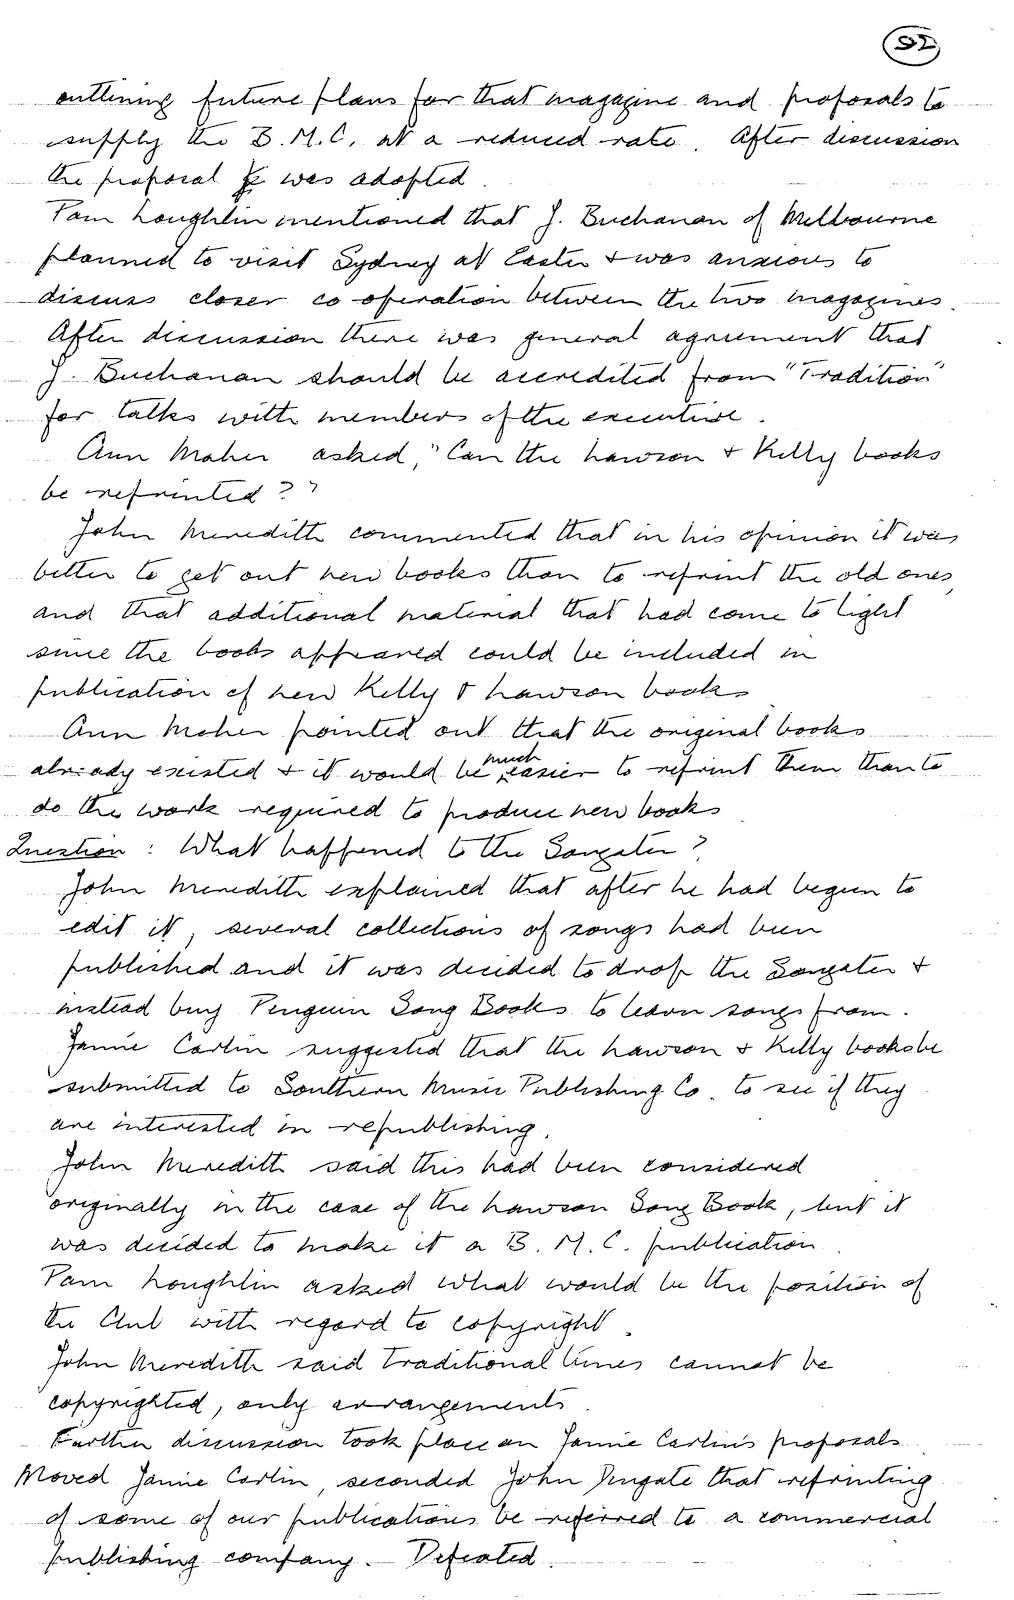 92
outlining future plans for that magazine and proposals to
supply the B.M.C. at a reduced rate. After discussion
the proposal was adopted.
Pam Loughlin mentioned that J. Buchanan of Melbourne
planned to visit Sydney at Easter & was anxious to
discuss closer co operation between the two magazines.
After discussion there was general agreement that
J. Buchanan should be accredited from "Tradition"
for talks with members of the executive.
Ann Maher asked, "Can the Lawson & Kelly books
be reprinted?"
John Meredith commented that in his opinion it was
better to get out new books than to reprint the old ones,
and that additional material that had come to light
since the books appeared could be included in
publication of new Kelly & Lawson books
Ann Maher pointed out that the original books
already existed & it would be much easier to reprint them than to
do the work required to produce new books
Question: What happened to the Songster?
John Meredith explained that after he had begun to
edit it, several collections of songs had been
published and it was decided to drop the Songster &
instead buy Penguin Song Books to learn songs from.
Jamie Carlin suggested that the Lawson & Kelly books be
submitted to Southern Music Publishing Co. to see if they
are interested in republishing.
John Meredith said this had been considered
originally in the case of the Lawson Song Book, but it
was decided to make it a B.M.C. publication.
Pam Loughlin asked what would be the position of
the Club with regard to copyright.
John Meredith said traditional tunes cannot be
copyrighted, only arrangements.
Further discussion took place on Jamie Carlin's proposals.
Moved Jamie Carlin, seconded John Dengate that reprinting
of some of our publications be referred to a commercial
publishing company. - Defeated.